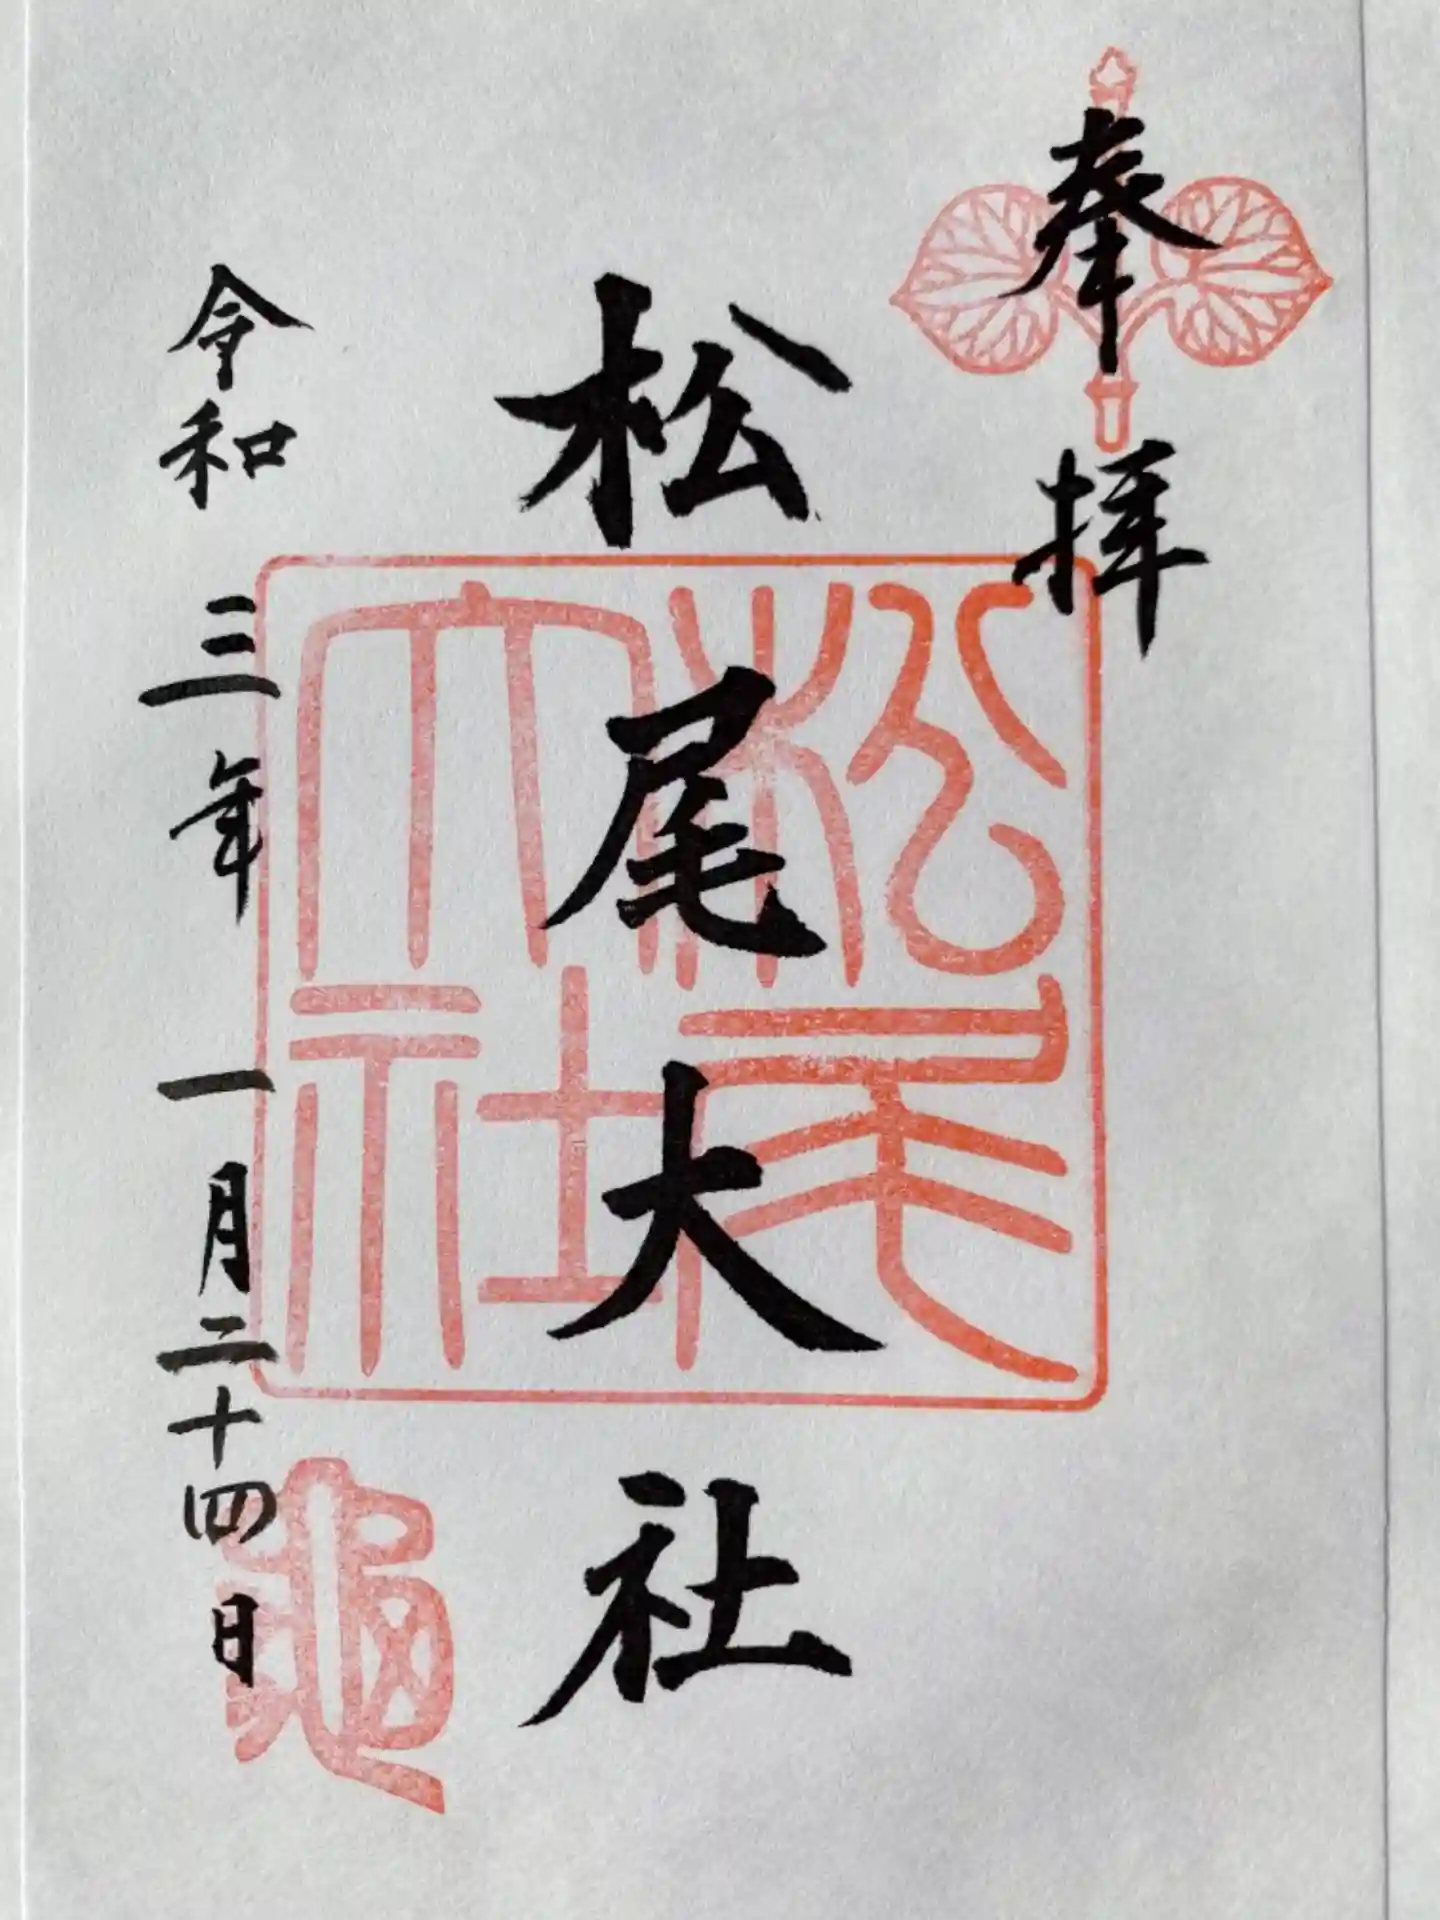 奉拝
松尾大社
松尾大社
令和三年一月二十四日
亀